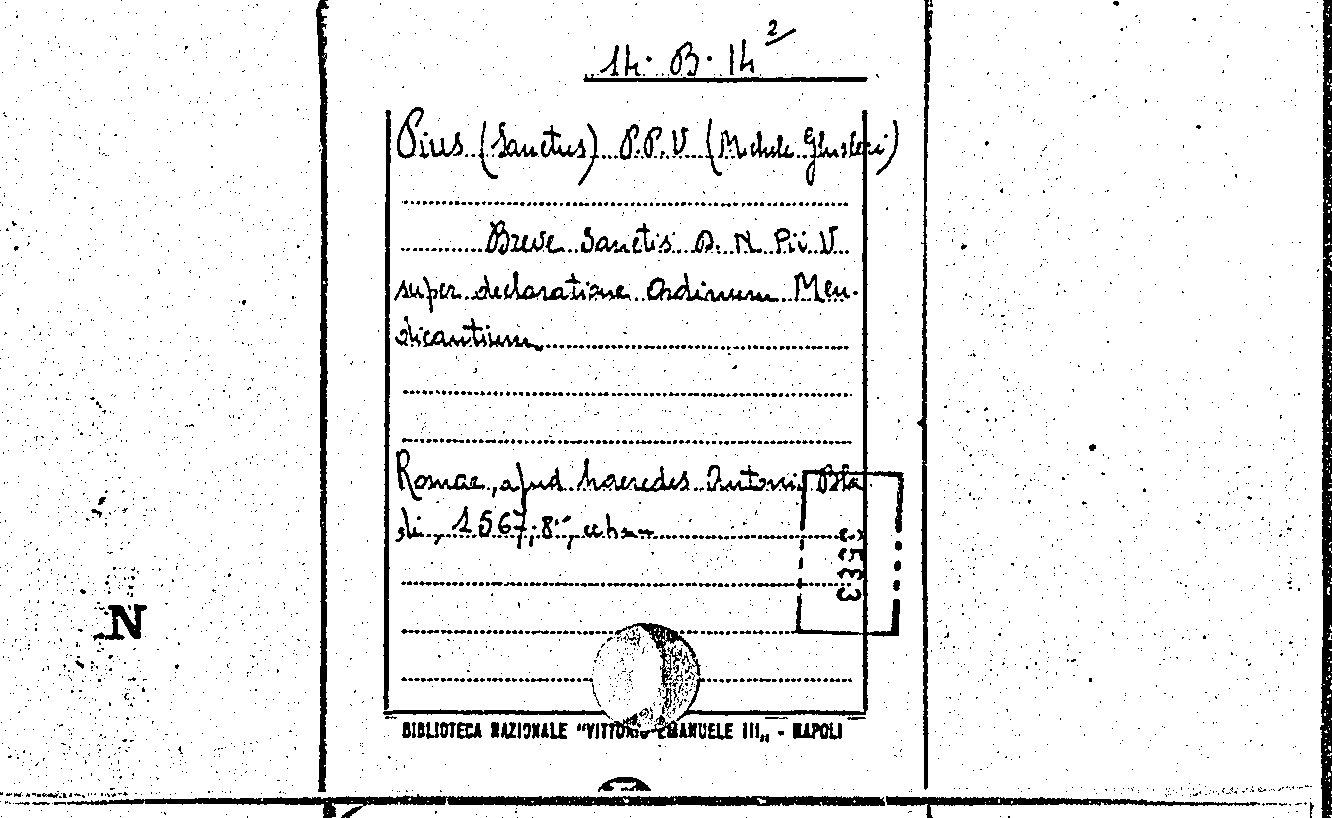 14. B. 14 2
Pius (Sanctus) P.P. V (Michele Ghisleri)
Breve Sanctis D. N. Pii V
super declaratione Ordinum Men-
dicantium
Romae, apud haeredes Antonii Bla
di, 1567, 8°,
3533
N
BIBLIOTECA NAZIONALE "VITTORIO EMANUELE III„ - NAPOLI